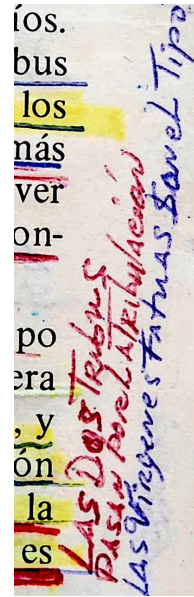 íos.
bus
los
más
ver
on-
po
era
, y
ón
la
es
LAS DOS Tribus
PASAN POR LA Tribulación
Las Vírgenes Fatuas Son el Tipo